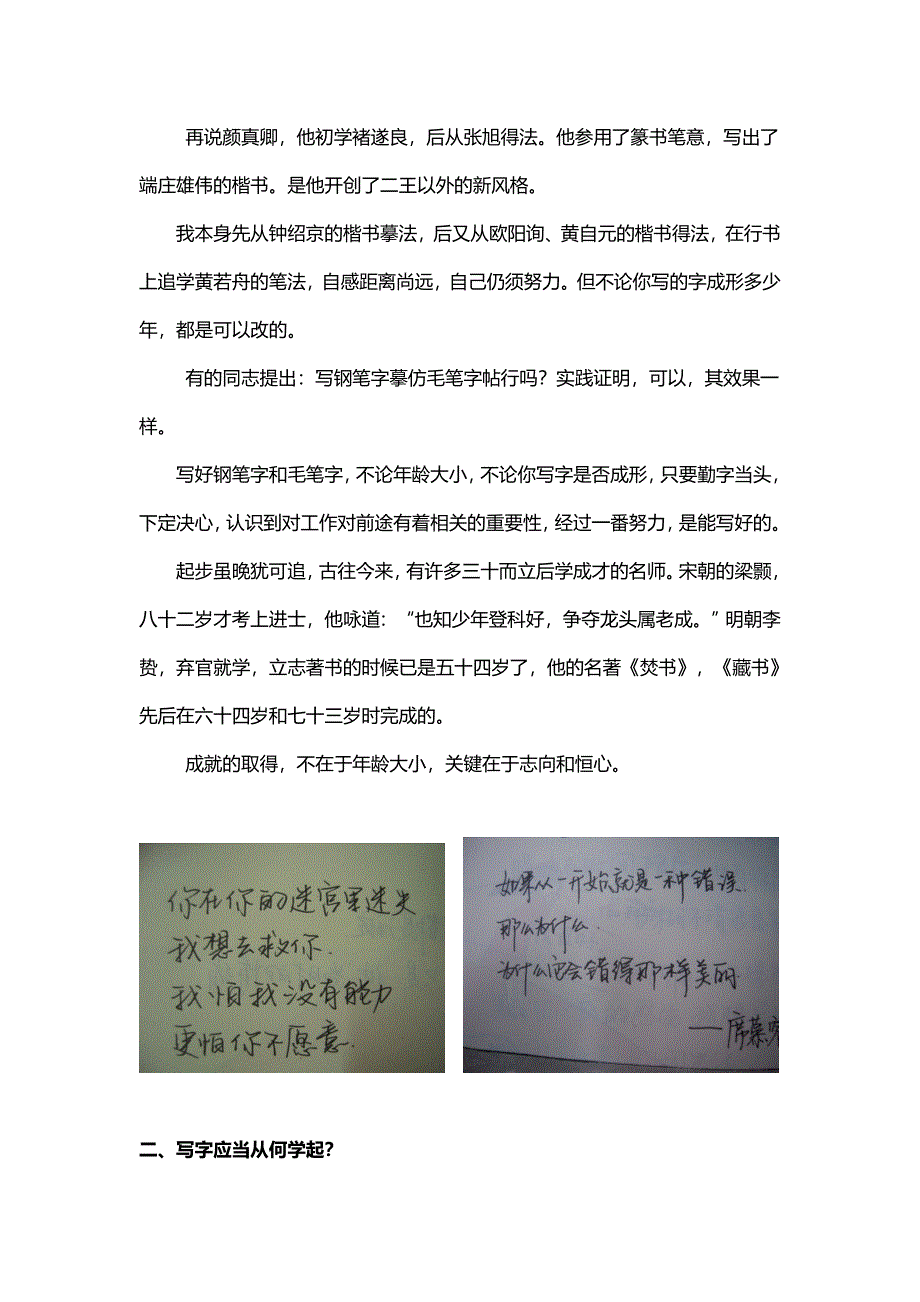 再说颜真卿，他初学褚遂良，后从张旭得法。他参用了篆书笔意，写出了
端庄雄伟的楷书。是他开创了二王以外的新风格。
我本身先从钟绍京的楷书摹法，后又从欧阳询、黄自元的楷书得法，在行书
上追学黄若舟的笔法，自感距离尚远，自己仍须努力。但不论你写的字成形多少
年，都是可以改的。
有的同志提出：写钢笔字摹仿毛笔字帖行吗？实践证明，可以，其效果一
样。
写好钢笔字和毛笔字，不论年龄大小，不论你写字是否成形，只要勤字当头，
下定决心，认识到对工作对前途有着相关的重要性，经过一番努力，是能写好的。
起步虽晚犹可追，古往今来，有许多三十而立后学成才的名师。宋朝的梁颢，
八十二岁才考上进士，他咏道：“也知少年登科好，争夺龙头属老成。”明朝李
贽，弃官就学，立志著书的时候已是五十四岁了，他的名著《焚书》，《藏书》
先后在六十四岁和七十三岁时完成的。
成就的取得，不在于年龄大小，关键在于志向和恒心。
你在你的迷宫里迷失
我想去救你.
我怕我没有能力
更怕你不愿意.
如果从一开始就是一种错误.
那么为什么.
为什么它会错得那样美丽
——席慕容
二、写字应当从何学起？